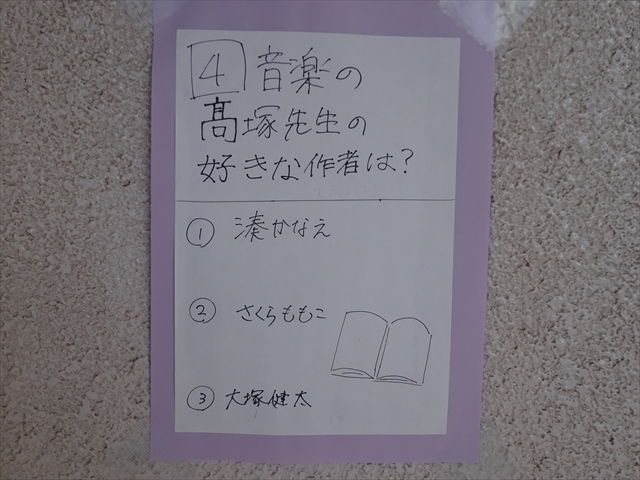 4 音楽の
髙塚先生の
好きな作者は?
① 湊かなえ
② さくらももこ
③ 大塚健太